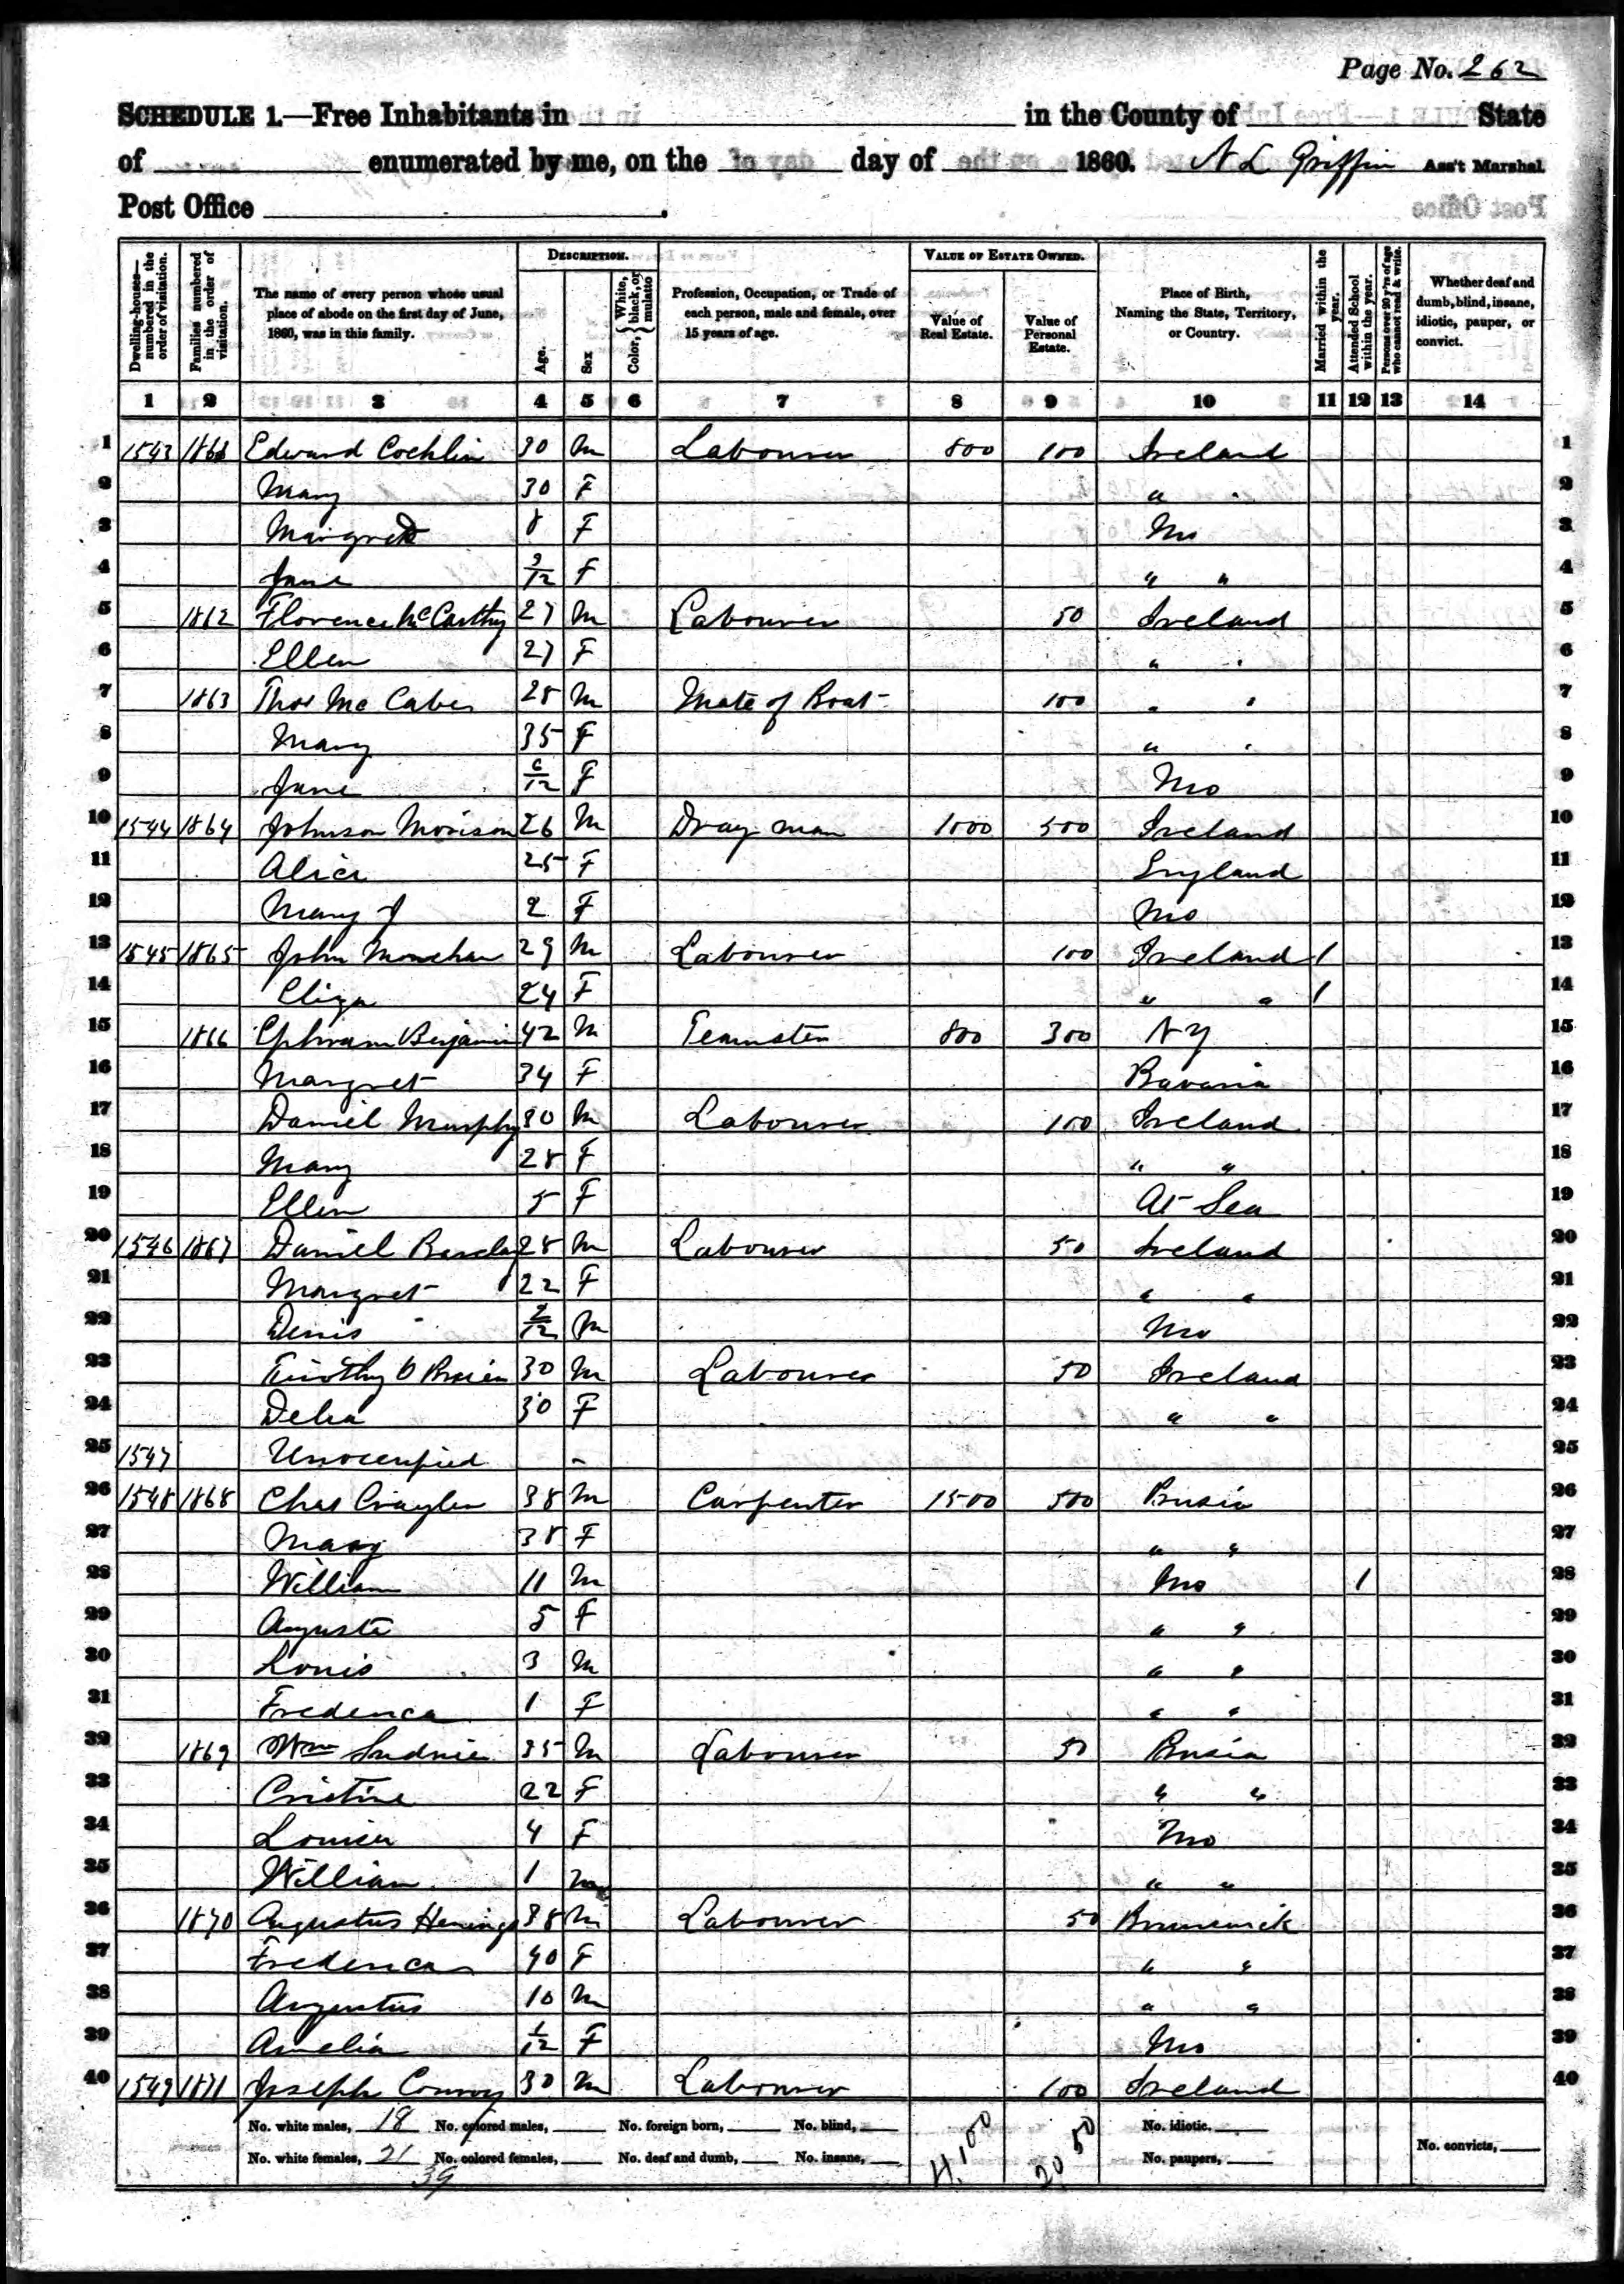 Page No. 262
SCHEDULE 1.—Free Inhabitants in in the County of State
of enumerated by me, on the day of 1860. N L Griffin Ass't Marshal
Post Office
Dwelling-houses—numbered in the order of visitation.
Families numbered in the order of visitation.
The name of every person whose usual place of abode on the first day of June, 1860, was in this family.
DESCRIPTION.
Age.
Sex
Color, { White, black, or mulatto
Profession, Occupation, or Trade of each person, male and female, over 15 years of age.
VALUE OF ESTATE OWNED.
Value of Real Estate.
Value of Personal Estate.
Place of Birth, Naming the State, Territory, or Country.
Married within the year.
Attended School within the year.
Persons over 20 y'rs of age who cannot read & write.
Whether deaf and dumb, blind, insane, idiotic, pauper, or convict.
1 2 3 4 5 6 7 8 9 10 11 12 13 14
1 1543 1861 Edward Cochlin 30 m Labourer 800 100 Ireland 1
2 Mary 30 F " " 2
3 Margret 8 F Mo 3
4 Jane 9/12 F " " 4
5 1862 Florence McCarthy 27 m Labourer 50 Ireland 5
6 Ellen 27 F " " 6
7 1863 Thos McCabe 28 m Mate of Boat 100 " " 7
8 Mary 35 F " " 8
9 Jane 6/12 F Mo 9
10 1544 1864 Johnson Morison 26 m Dray man 1000 500 Ireland 10
11 Alice 25 F England 11
12 Mary J 2 F Mo 12
13 1545 1865 John Monehan 29 m Labourer 100 Ireland / 13
14 Eliza 24 F " " / 14
15 1866 Ephram Benjamin 42 m Teamster 800 300 NY 15
16 Margret 34 F Bavaria 16
17 Daniel Murphy 30 m Labourer 100 Ireland 17
18 Mary 28 F " " 18
19 Ellen 5 F At Sea 19
20 1546 1867 Daniel Barclay 28 m Labourer 50 Ireland 20
21 Margret 22 F " " 21
22 Denis /12 m Mo 22
23 Timothy O Brien 30 m Labourer 50 Ireland 23
24 Delia 30 F " " 24
25 1547 Unoccupied - 25
26 1548 1868 Chas 38 m Carpenter 1500 500 Prusia 26
27 Mary 38 F " " 27
28 William 11 m Mo 1 28
29 Auguste 5 F " " 29
30 Louis 3 m " " 30
31 Frederica 1 F " " 31
32 1869 Wm 35 m Labourer 50 Prusia 32
33 Cristine 22 F " " 33
34 Louisa 4 F Mo 34
35 William 1 m " " 35
36 1870 Augustus Henings 38 m Labourer 50 Brunswick 36
37 Frederica 40 F " " 37
38 Augustus 10 m " " 38
39 Amelia 1/12 F Mo 39
40 1549 1871 Joseph Conroy 30 m Labourer 100 Ireland 40
No. white males, 18 No. colored males, No. foreign born, No. blind, No. idiotic,
No. white females, 21 No. colored females, No. deaf and dumb, No. insane, No. paupers, No. convicts,
39 4100 2050